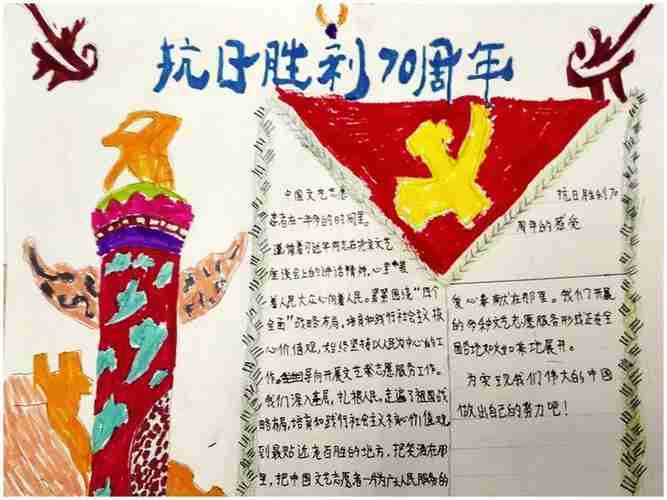 抗日胜利70周年
中国文艺志愿
者在一年多的时间里。
遵循着习近平同志在北京文艺
座谈会上的讲话精神,心里装
着人民大众心向着人民。紧紧围绕"四个
全面"战略布局,培育和践行社会主义核
心价值观,始终坚持以人民为中心的工
作导向开展文艺家志愿服务工作。
我们深入基层,扎根人民。走遍了祖国战
略布局,培育和践行社会主义核心价值观
到最贴近老百胜的地方,把笑洒在那
里,把中国文艺志愿者一片为广大人民服务的
抗日胜利70
周年的感受
爱心奉献在那里。我们开展
的多种文艺志愿服务形式正在全
国各地如火如荼地展开。
为实现我们伟大的中国
做出自己的努力吧!